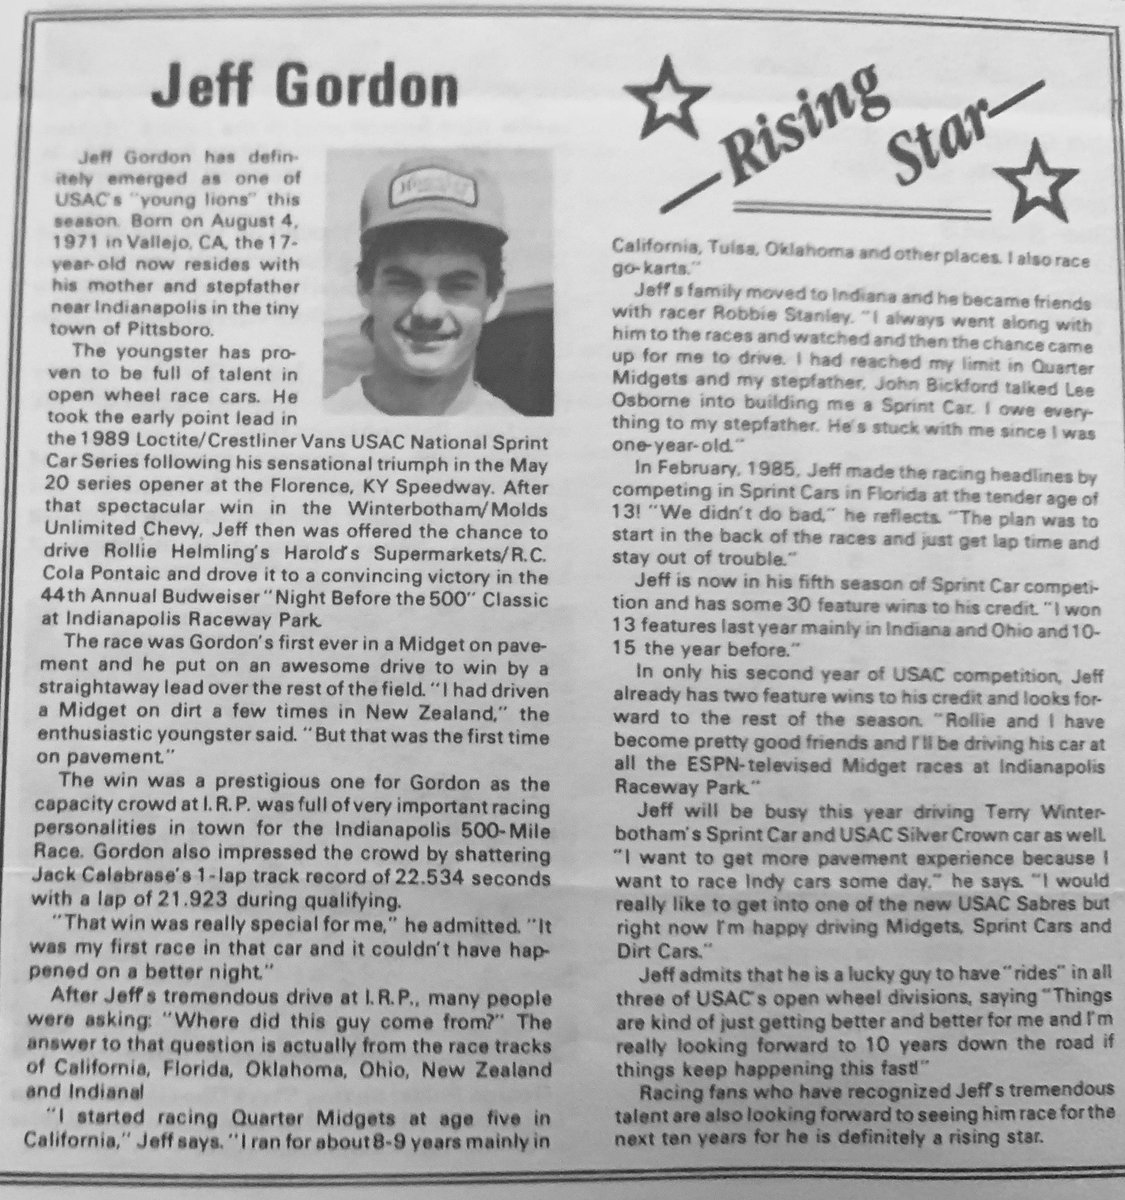 Jeff Gordon
Jeff Gordon has defin-
itely emerged as one of
USAC's "young lions" this
season. Born on August 4,
1971 in Vallejo, CA, the 17-
year-old now resides with
his mother and stepfather
near Indianapolis in the tiny
town of Pittsboro.
The youngster has pro-
ven to be full of talent in
open wheel race cars. He
took the early point lead in
the 1989 Loctite/Crestliner Vans USAC National Sprint
Car Series following his sensational triumph in the May
20 series opener at the Florence, KY Speedway. After
that spectacular win in the Winterbotham/Molds
Unlimited Chevy, Jeff then was offered the chance to
drive Rollie Helmling's Harold's Supermarkets/R.C.
Cola Pontaic and drove it to a convincing victory in the
44th Annual Budweiser "Night Before the 500" Classic
at Indianapolis Raceway Park.
The race was Gordon's first ever in a Midget on pave-
ment and he put on an awesome drive to win by a
straightaway lead over the rest of the field. "I had driven
a Midget on dirt a few times in New Zealand," the
enthusiastic youngster said. "But that was the first time
on pavement."
The win was a prestigious one for Gordon as the
capacity crowd at I.R.P. was full of very important racing
personalities in town for the Indianapolis 500-Mile
Race. Gordon also impressed the crowd by shattering
Jack Calabrase's 1-lap track record of 22.534 seconds
with a lap of 21.923 during qualifying.
"That win was really special for me," he admitted. "It
was my first race in that car and it couldn't have hap-
pened on a better night."
After Jeff's tremendous drive at I.R.P., many people
were asking: "Where did this guy come from?" The
answer to that question is actually from the race tracks
of California, Florida, Oklahoma, Ohio, New Zealand
and Indiana!
"I started racing Quarter Midgets at age five in
California," Jeff says. "I ran for about 8-9 years mainly in
—Rising
Star—
California, Tulsa, Oklahoma and other places. I also race
go-karts."
Jeff's family moved to Indiana and he became friends
with racer Robbie Stanley. "I always went along with
him to the races and watched and then the chance came
up for me to drive. I had reached my limit in Quarter
Midgets and my stepfather, John Bickford talked Lee
Osborne into building me a Sprint Car. I owe every-
thing to my stepfather. He's stuck with me since I was
one-year-old."
In February, 1985, Jeff made the racing headlines by
competing in Sprint Cars in Florida at the tender age of
13! "We didn't do bad," he reflects. "The plan was to
start in the back of the races and just get lap time and
stay out of trouble."
Jeff is now in his fifth season of Sprint Car competi-
tion and has some 30 feature wins to his credit. "I won
13 features last year mainly in Indiana and Ohio and 10-
15 the year before."
In only his second year of USAC competition, Jeff
already has two feature wins to his credit and looks for-
ward to the rest of the season. "Rollie and I have
become pretty good friends and I'll be driving his car at
all the ESPN-televised Midget races at Indianapolis
Raceway Park."
Jeff will be busy this year driving Terry Winter-
botham's Sprint Car and USAC Silver Crown car as well.
"I want to get more pavement experience because I
want to race Indy cars some day," he says. "I would
really like to get into one of the new USAC Sabres but
right now I'm happy driving Midgets, Sprint Cars and
Dirt Cars."
Jeff admits that he is a lucky guy to have "rides" in all
three of USAC's open wheel divisions, saying "Things
are kind of just getting better and better for me and I'm
really looking forward to 10 years down the road if
things keep happening this fast!"
Racing fans who have recognized Jeff's tremendous
talent are also looking forward to seeing him race for the
next ten years for he is definitely a rising star.